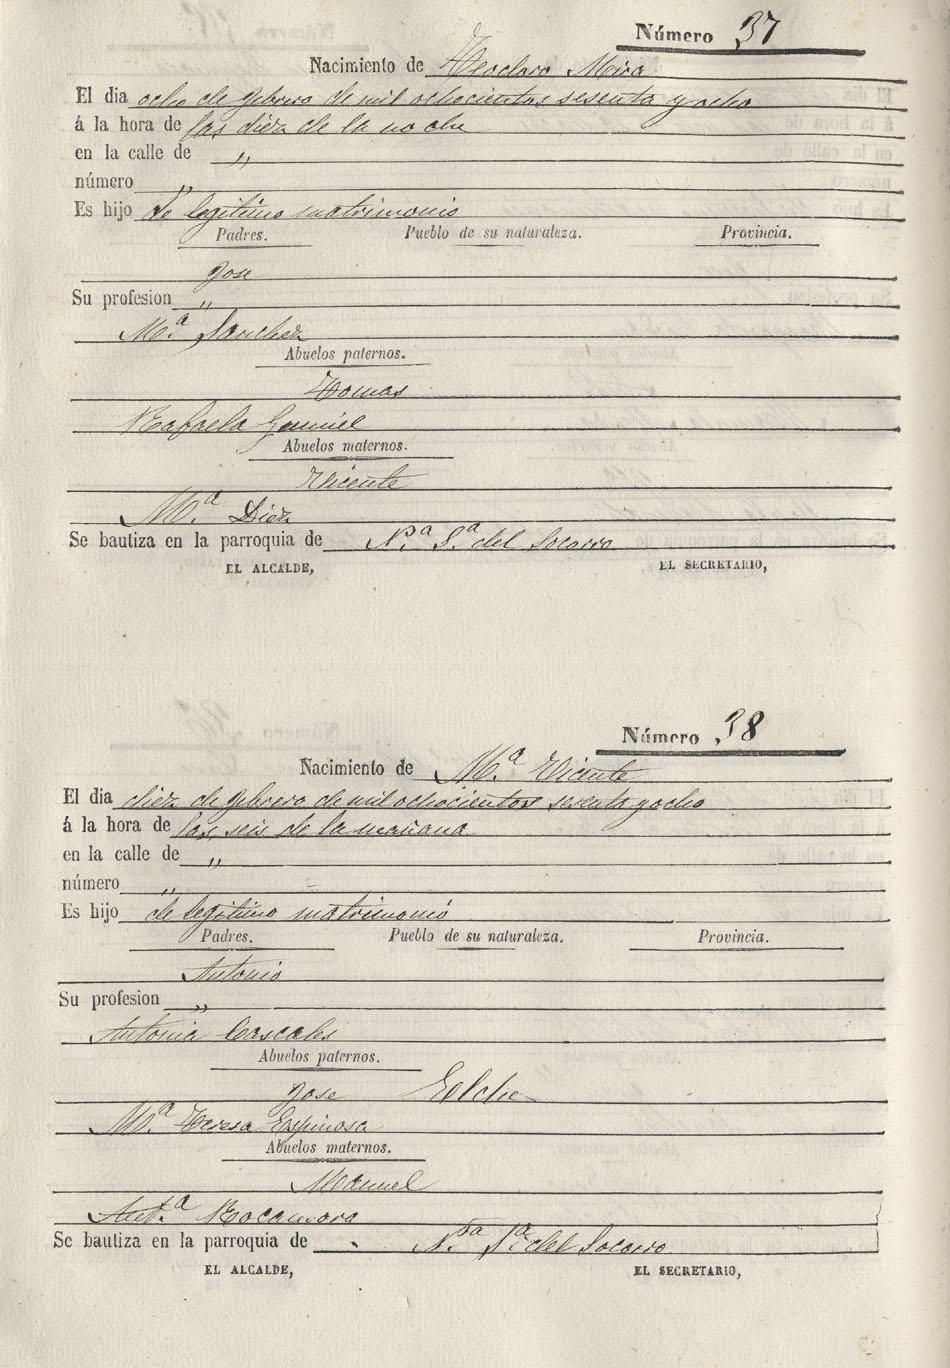 Número 37
Nacimiento de Teodoro Mira
El dia ocho de febrero de mil ochocientos sesenta y ocho
á la hora de las diez de la noche
en la calle de "
número "
Es hijo de legitimo matrimonio
Padres. Pueblo de su naturaleza. Provincia.
Jose
Su profesion "
Mª. Sanchez
Abuelos paternos.
Tomas
Rafaela
Abuelos maternos.
Vicente
Mª. Diez
Se bautiza en la parroquia de Nª. Sª. del Socorro
EL ALCALDE, EL SECRETARIO,
Número 38
Nacimiento de Mª. Vicente
El dia diez de febrero de mil ochocientos sesenta y ocho
á la hora de las seis de la mañana
en la calle de "
número "
Es hijo de legitimo matrimonio
Padres. Pueblo de su naturaleza. Provincia.
Antonio
Su profesion "
Antonia Cascales
Abuelos paternos.
Jose Elche
Mª. Teresa Espinosa
Abuelos maternos.
Manuel
Antª. Rocamora
Se bautiza en la parroquia de Nª. Sª. del Socorro
EL ALCALDE, EL SECRETARIO,